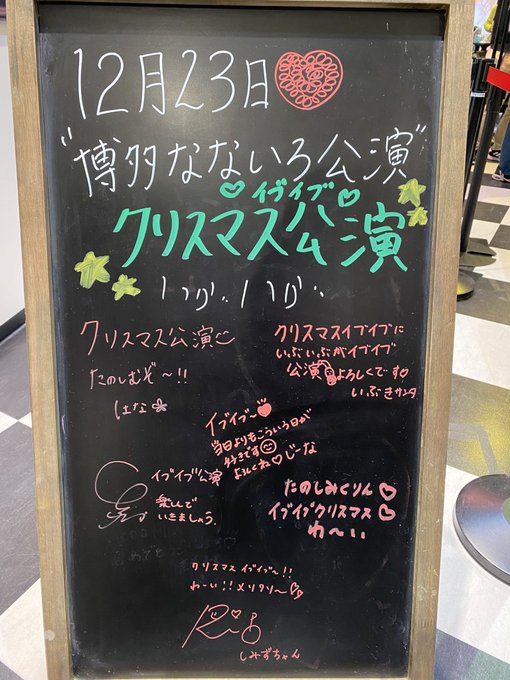 12月23日
"博多なないろ公演"
イブイブ
クリスマス公演
クリスマス公演
たのしむぞ〜!!
はな
クリスマスイブイブに
いぶいぶがイブイブ
公演よろしくです
いぶきサンタ
イブイブ〜
当日よりもこういう日が
好きです
よろしくね♡じーな
イブイブ公演
楽しんで
いきましょう。
たのしみくりん♡
イブイブクリスマス♡
わ〜い
クリスマスイブイブ〜!!
わーい!!メリクリ〜
しみずちゃん